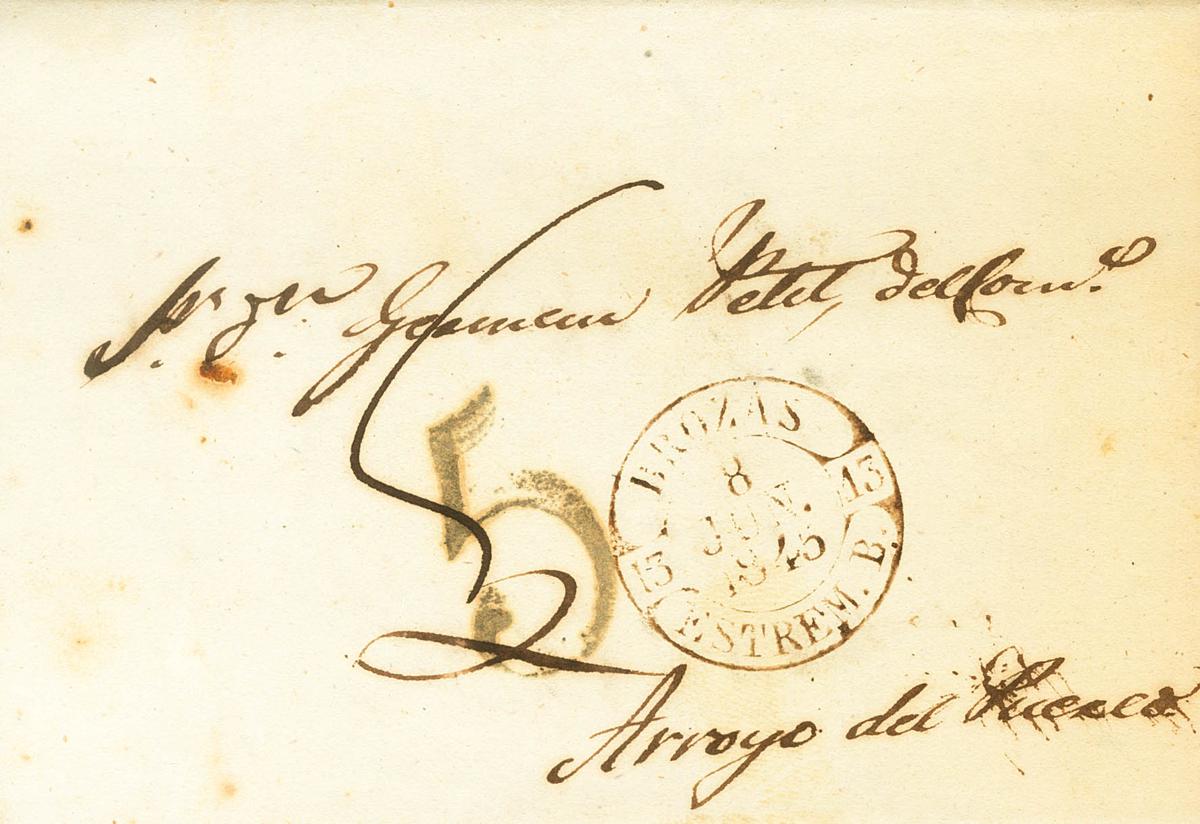 Sr. Dn. German Petit, del Com.º
5
BROZAS
13
8
JUN.
1845
13
ESTREM. B.
Arroyo del Puerco